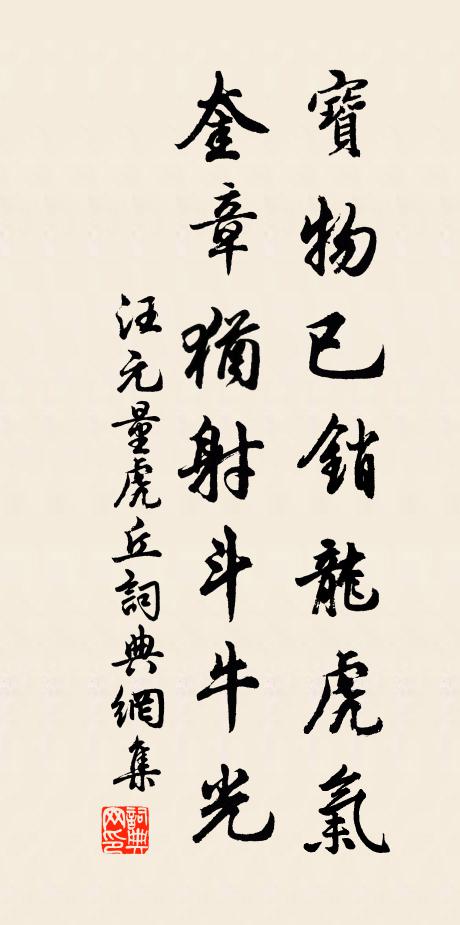 寶物已銷龍虎氣
奎章猶射斗牛光
汪元量虎丘詞典網集
詞典網印